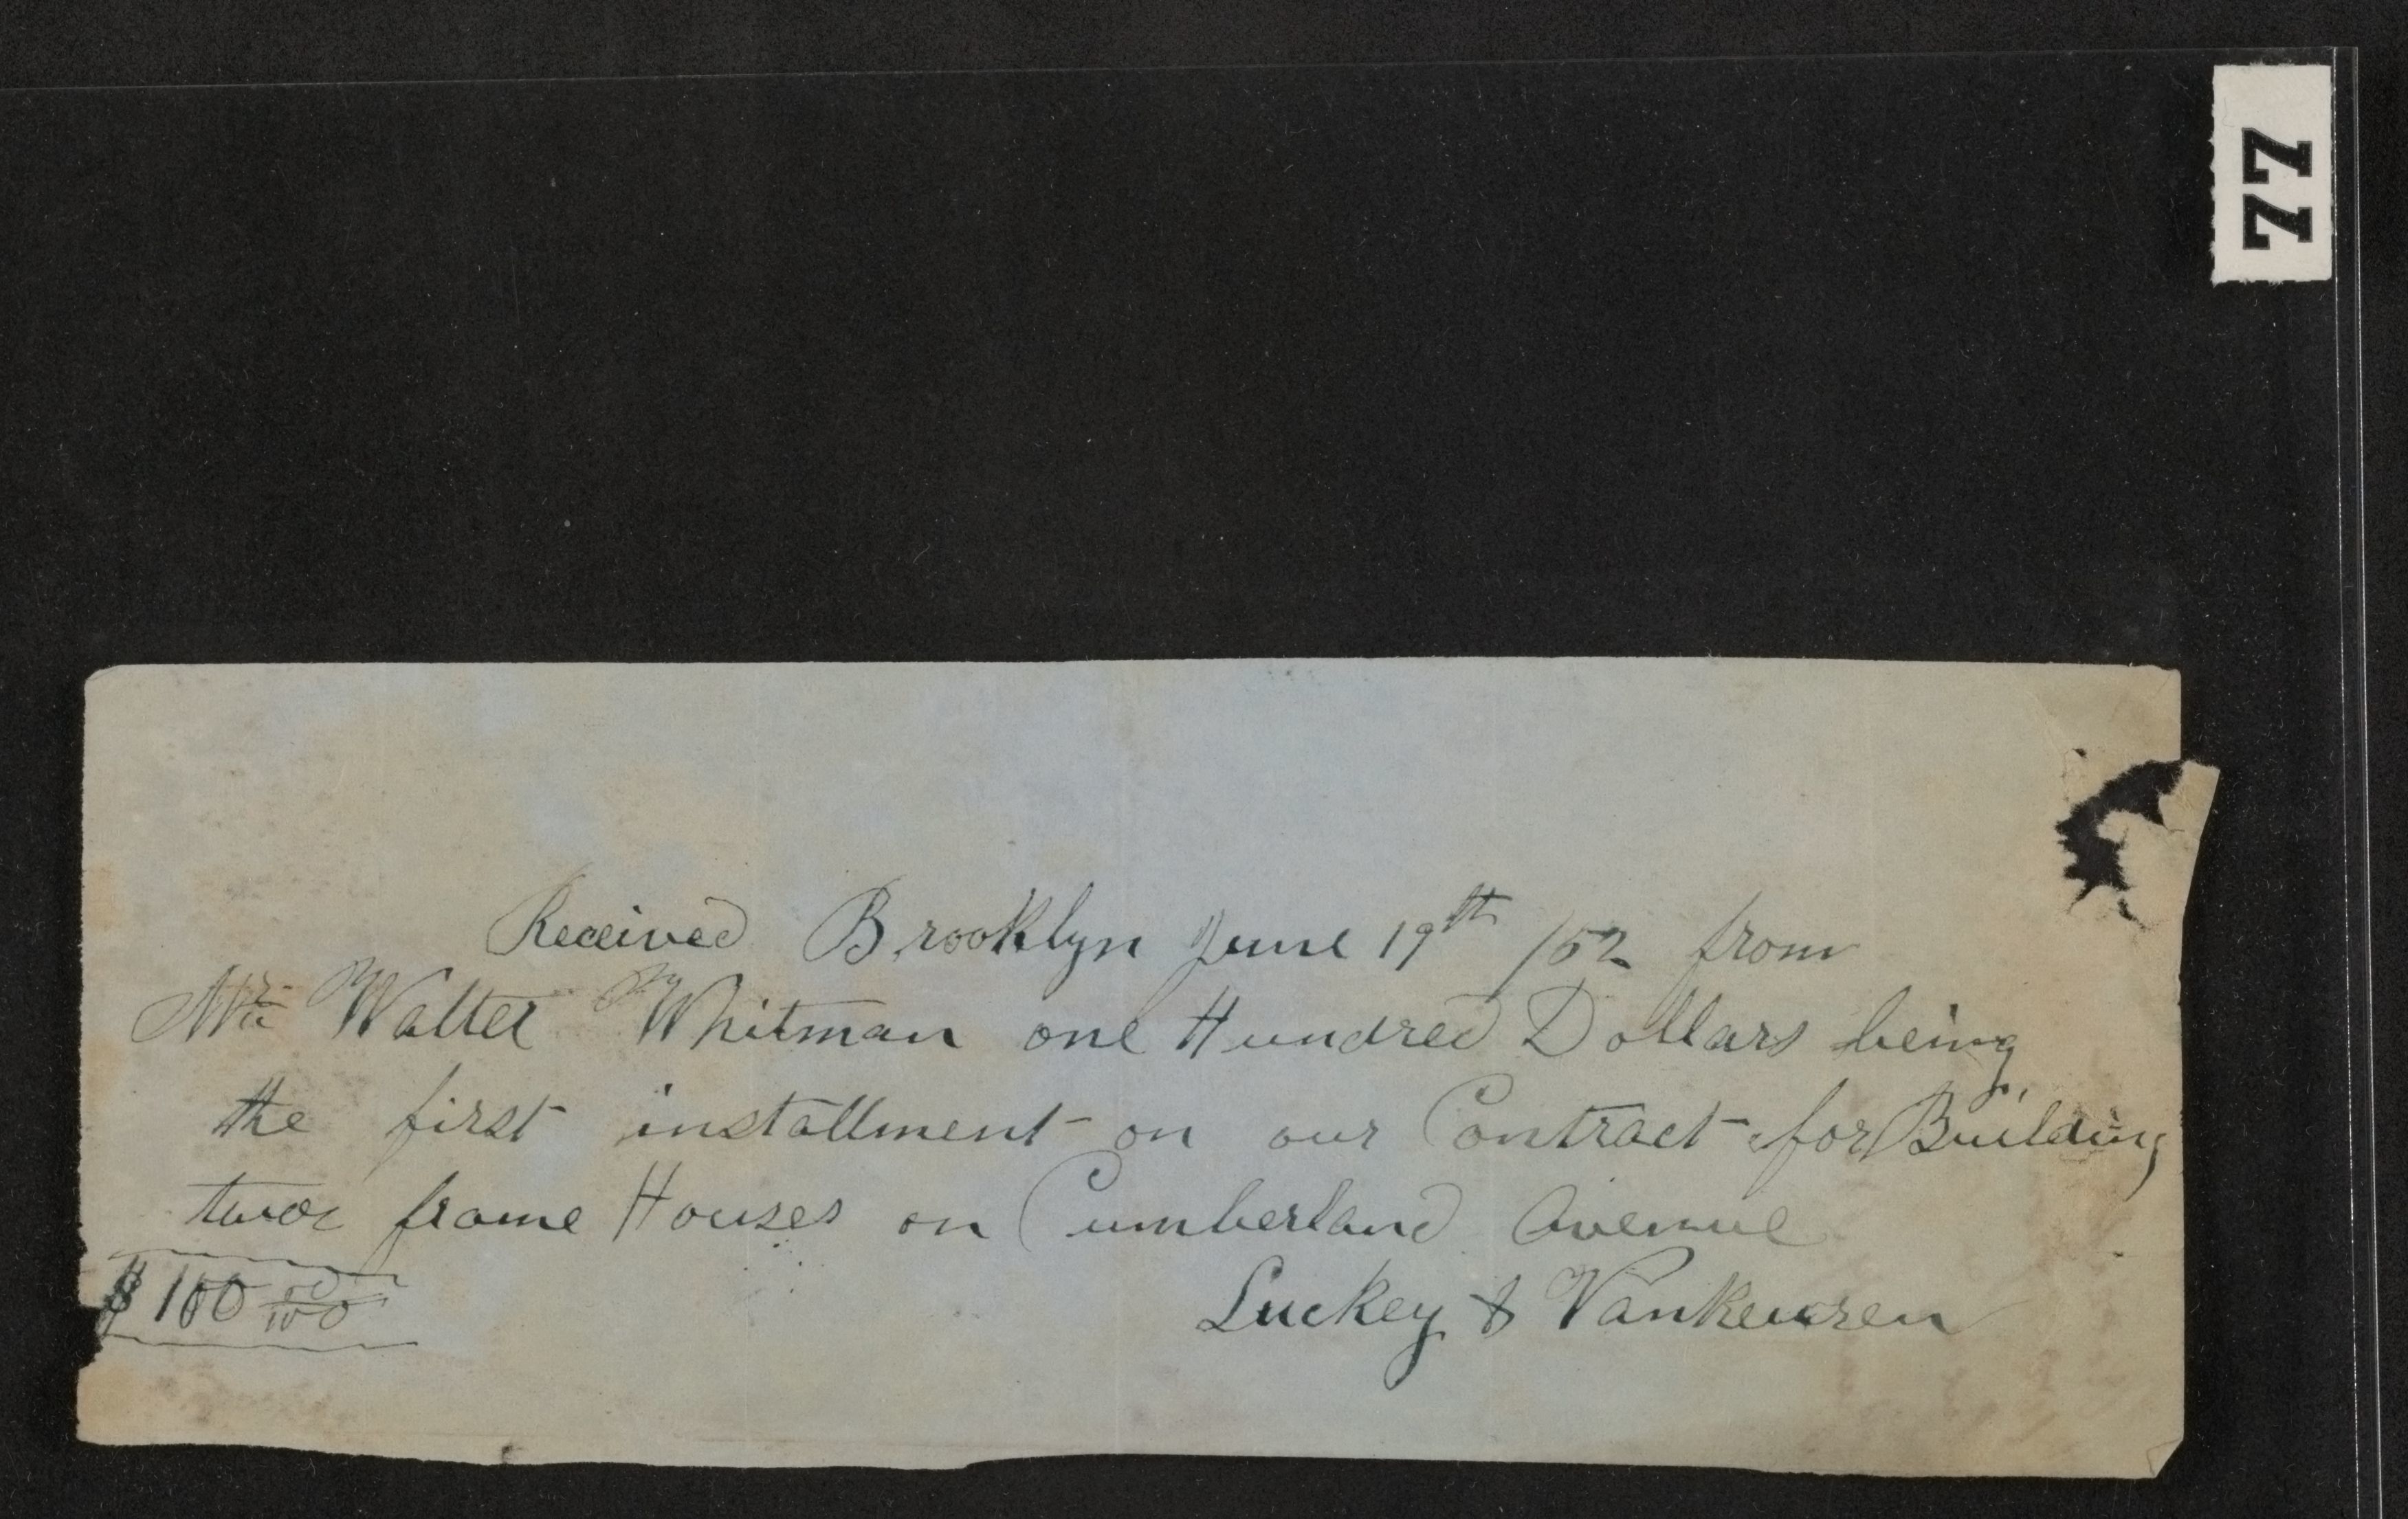 77
Received Brooklyn June 19th /52 from
Mr Walter Whitman one Hundred Dollars being
the first installment on our Contract for Building
two frame Houses on Cumberland Avenue
$100 00/100
Luckey & Vankeuren